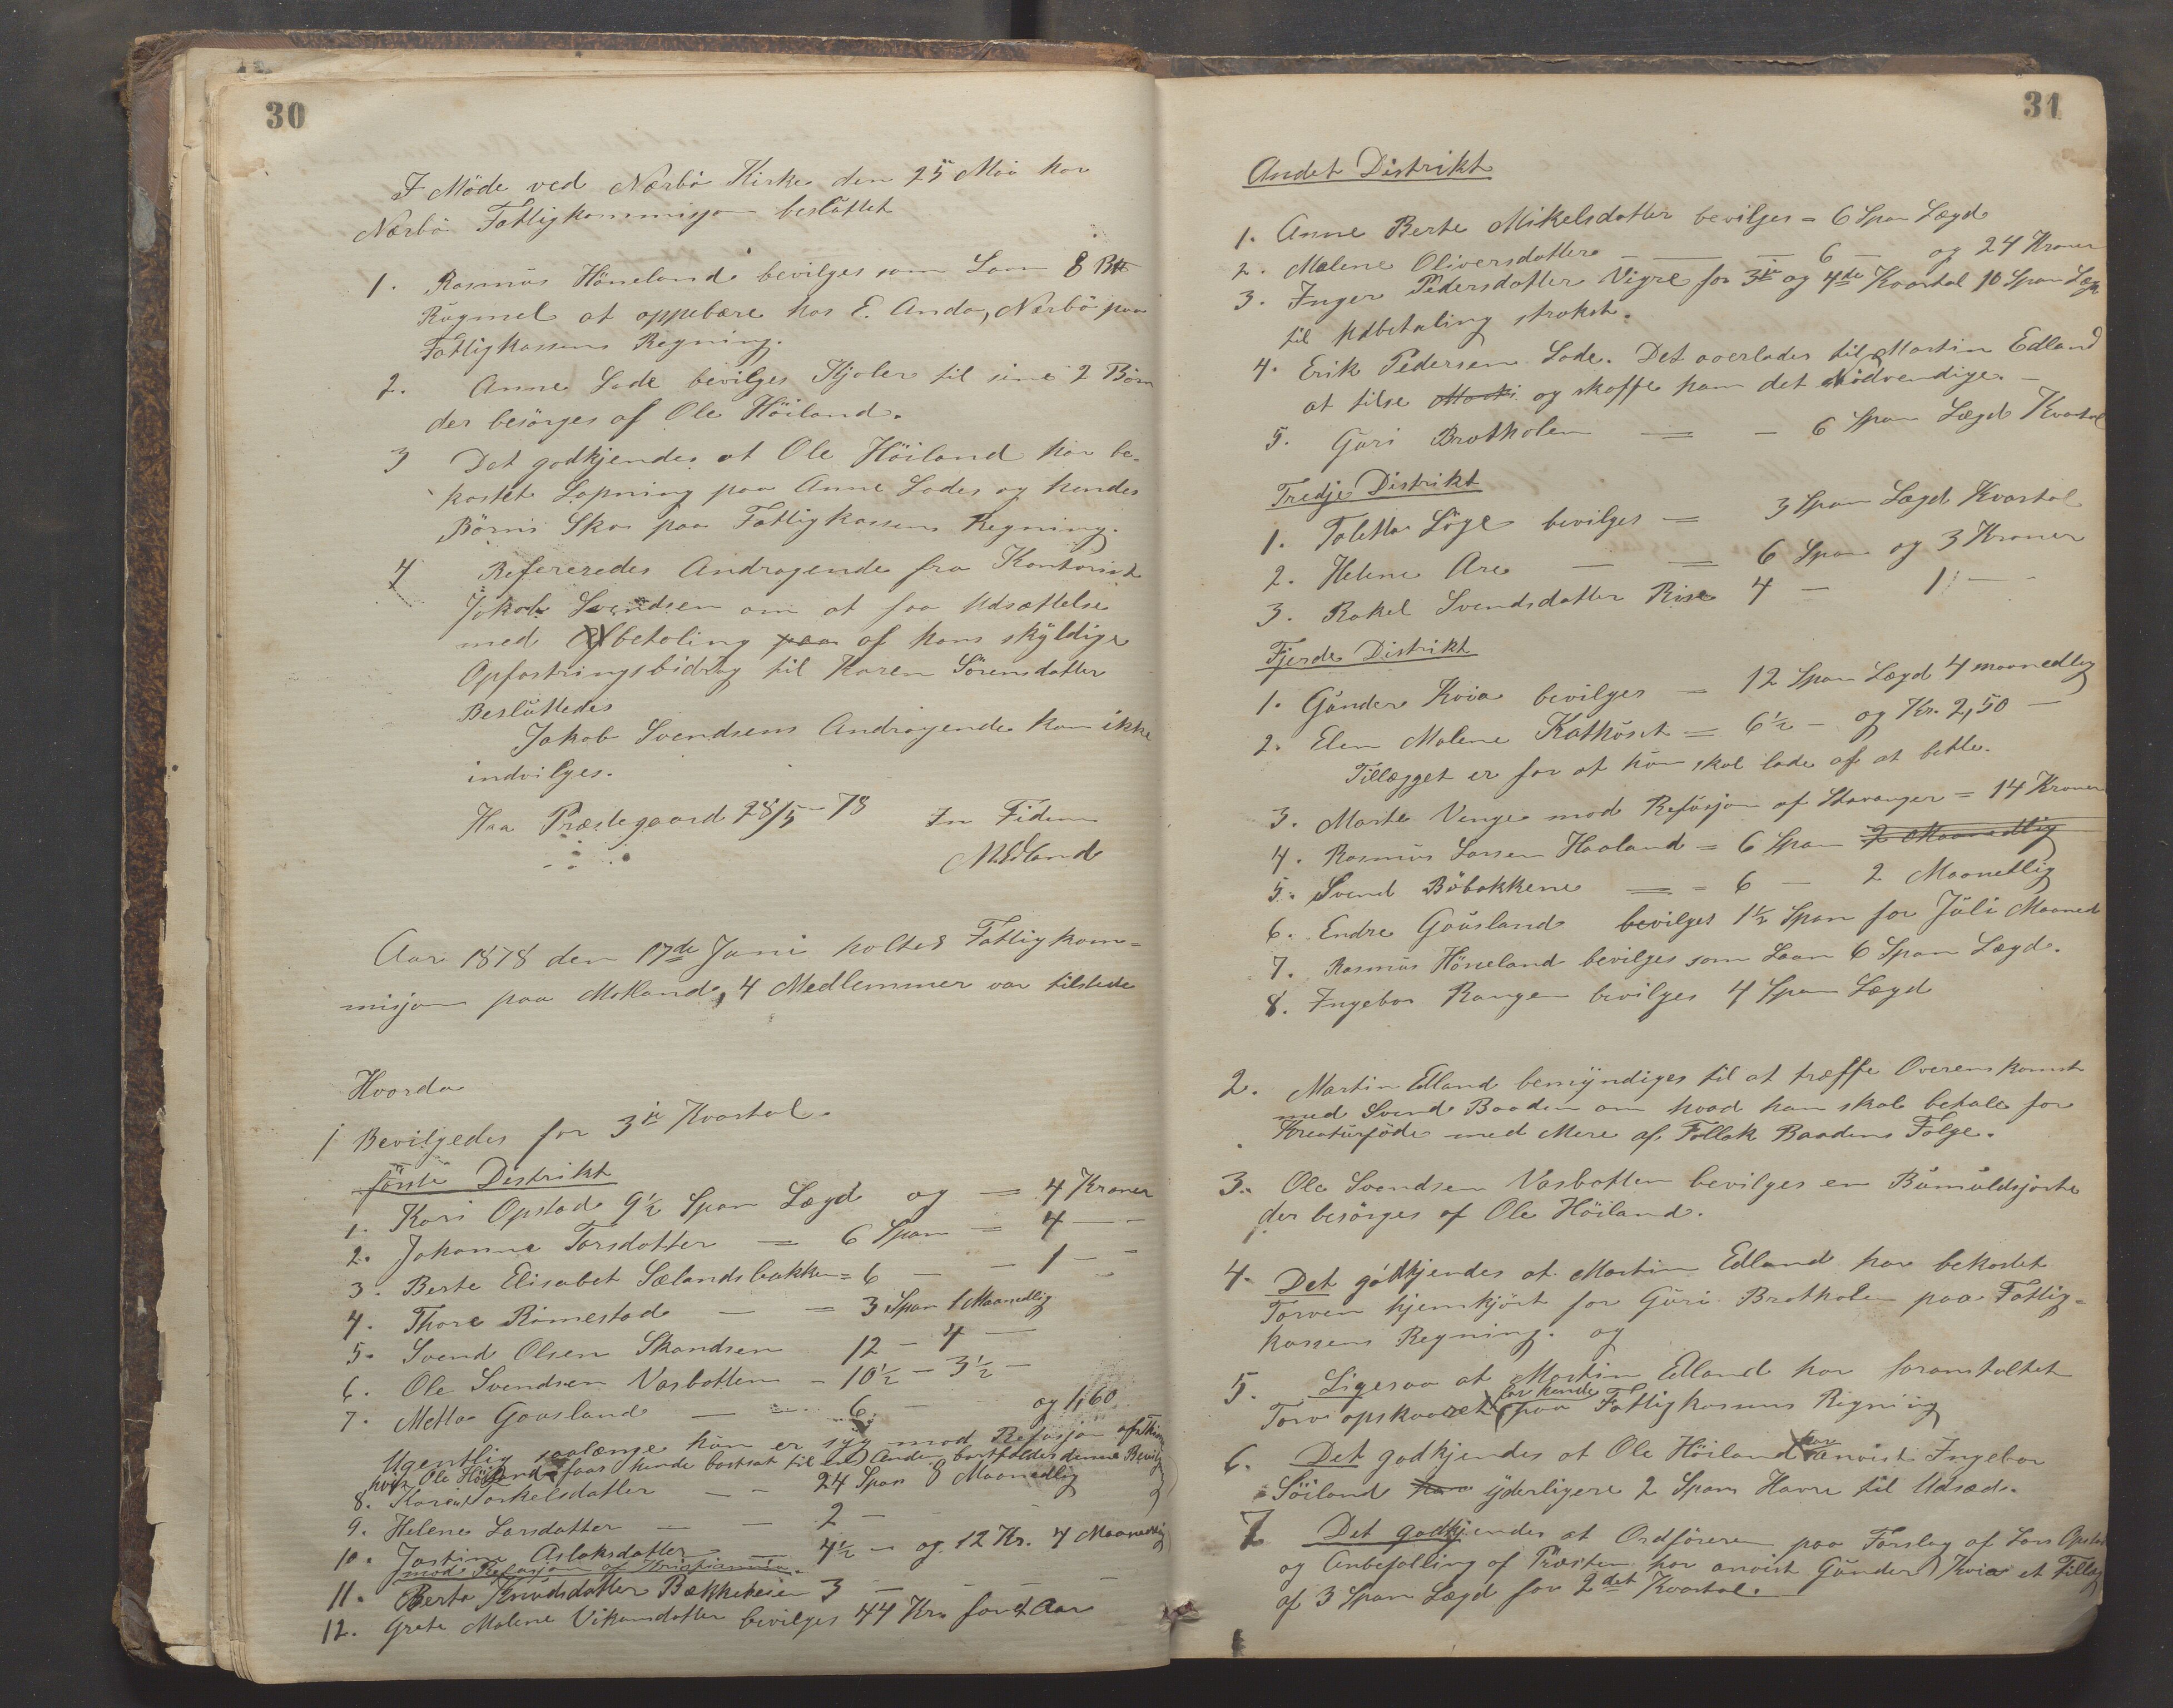 30
I Möde ved Nærbö Kirke den 25 Mai har
Nærbö Fattigkommisjon besluttet
1. Rasmus Höneland bevilges som Laan 8 B℔
Rugmel at oppebære hos E. Anda, Nærbö paa
Fattigkassens Regning.
2. Anne Lode bevilges Kjoler til sine 2 Börn
der besörges af Ole Höiland.
3 Det godkjendes at Ole Höiland har be-
kostet Lapning paa Anne Lodes og hendes
Börns Sko paa Fattigkassens Regning.
4 Refereredes Andragende fra Kontorist
Jakob Svendsen om at faa Udsættelse
med Afbetaling paa af hans skyldige
Opfostringsbidrag til Karen Sörensdatter
Besluttedes
Jakob Svendsens Andragende kan ikke
indvilges.
Haa Præstegaard 28/5-78 In Fidem
MEdland
Aar 1878 den 17de Juni holtes Fattigkom=
misjon paa Motland, 4 Medlemmer var tilstede
Hvorda
1 Bevilgedes for 3je Kvartal.
förste Distrikt
1. Kari Opstad 9½ Span Lægd og = 4 Kroner
2. Johanne Torsdatter = 6 Span = 4 — -
3. Berte Elisabet Sælandsbakken = 6 — - 1 - -
4. Thore Rimestad — = 3 Span 1 Maanedlig
5. Svend Olsen Skandsen 12 - 4 —
6. Ole Svendsen Vasbotten - 10½ - 3½ -
7. Metta Gausland — — 6. — og 1,60
Ugentlig saalænge hun er syg mod Refusjon af
hvis Ole Höiland faar hende bortsat til en Anden bortfalder denne
8. Karen Torkelsdatter — - 24 Span 8 Maanedlig
9. Helene Larsdatter — — 2 —
10. Jastine Aslaksdatter — 4½ - og 12 Kr. 4 Maanedlig
mod Refusjon af Kristiania.
11. Berta Knudsdatter Bækkeheien 3 — — — —
12. Grete Malene Vikansdatter bevilges 44 Kr. for 1 Aar
31
Andet Distrikt
1. Anne Berte Mikelsdatter bevilges = 6 Span Lægd
2. Malene Oliversdatter — — — 6 — og 24 Kroner
3. Inger Pedersdatter Vigre for 3je og 4de Kvartal 10 Span Lægd
til Udbetaling strakst.
4. Erik Pedersen Lode. Det overlades til Martin Edland
at tilse og skaffe ham det Nödvendige. —
5. Guri Bratholen = - 6 Span Lægd Kvartal
Tredje Distrikt
1. Taletta Löge bevilges = 3 Span Lægd Kvartal
2. Helene Are — = 6 Span og 3 Kroner
3. Rakel Svendsdatter Rise 4 — 1 — -
Fjerde Distrikt
1. Gunder Kvia bevilges = 12 Span Lægd 4 maanedlig
2. Elen Malene Kathuset = 6½ - og Kr. 2,50 —
Tillægget er for at hun skal lade af at betle.
3. Marte Venge mod Refusjon af Stavanger = 14 Kroner
4. Rasmus Larsen Haaland = 6 Span 2 Maanedlig
5. Svend Böbakkene = = 6 — 2 Maanedlig
6. Endre Gausland bevilges 1½ Span for Juli Maaned
7. Rasmus Höneland bevilges som Laan 6 Span Lægd.
8. Ingebor Rangen bevilges 4 Span Lægd
2. Martin Edland bemyndiges til at træffe Overenskomst
med Svend Baaden om hvad han skal betale for
Kreaturföde med Mere af Follak Baadens Fölge.
3. Ole Svendsen Vasbotten bevilges en Bumuldsjorte
der besörges af Ole Höiland.
4. Det gódkjendes at Martin Edland har bekostet
Torven hjemkjört for Guri Bratholen paa Fattig=
kassens Regning. og
5. Ligesaa at Martin Edland har foranstaltet
Torv opskaaret for hende paa Fattigkassens Regning
6. Det godkjendes at Ole Höiland har anvist Ingebor
Söiland har yderligere 2 Span Havre til Udsæd.
7 Det godkjendes at Ordföreren paa Forslag af Lars Opstad
og Anbefalling af Præsten har anvist Gunder Kvia et Tillæg
af 3 Span Lægd for 2det Kvartal.